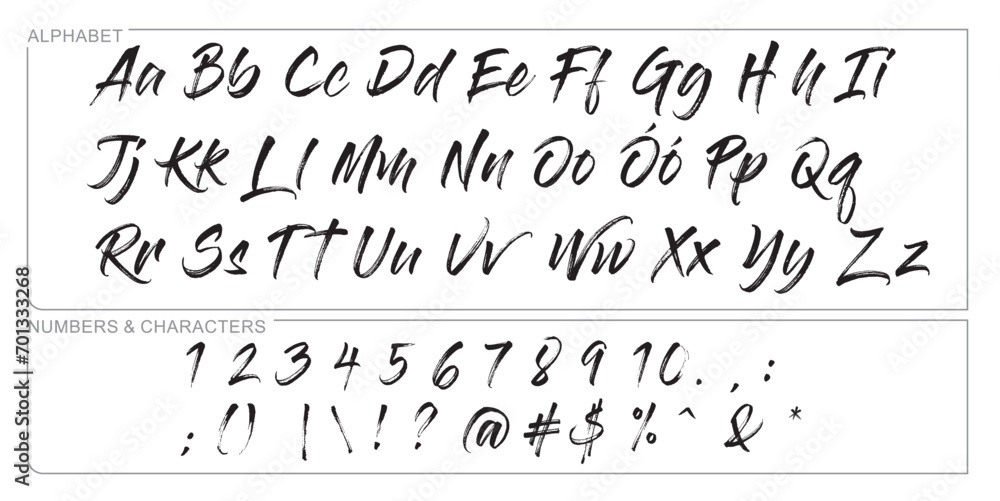 ALPHABET
Aa Bb Cc Dd Ee Ff Gg H h Ii
Jj Kk Ll Mm Nn Oo Óó Pp Qq
Rr Ss Tt Uu Vv Ww Xx Yy Zz
NUMBERS & CHARACTERS
1 2 3 4 5 6 7 8 9 10 . , :
; () | \ ! ? @ # $ % ^ & *
Adobe Stock | #701333268